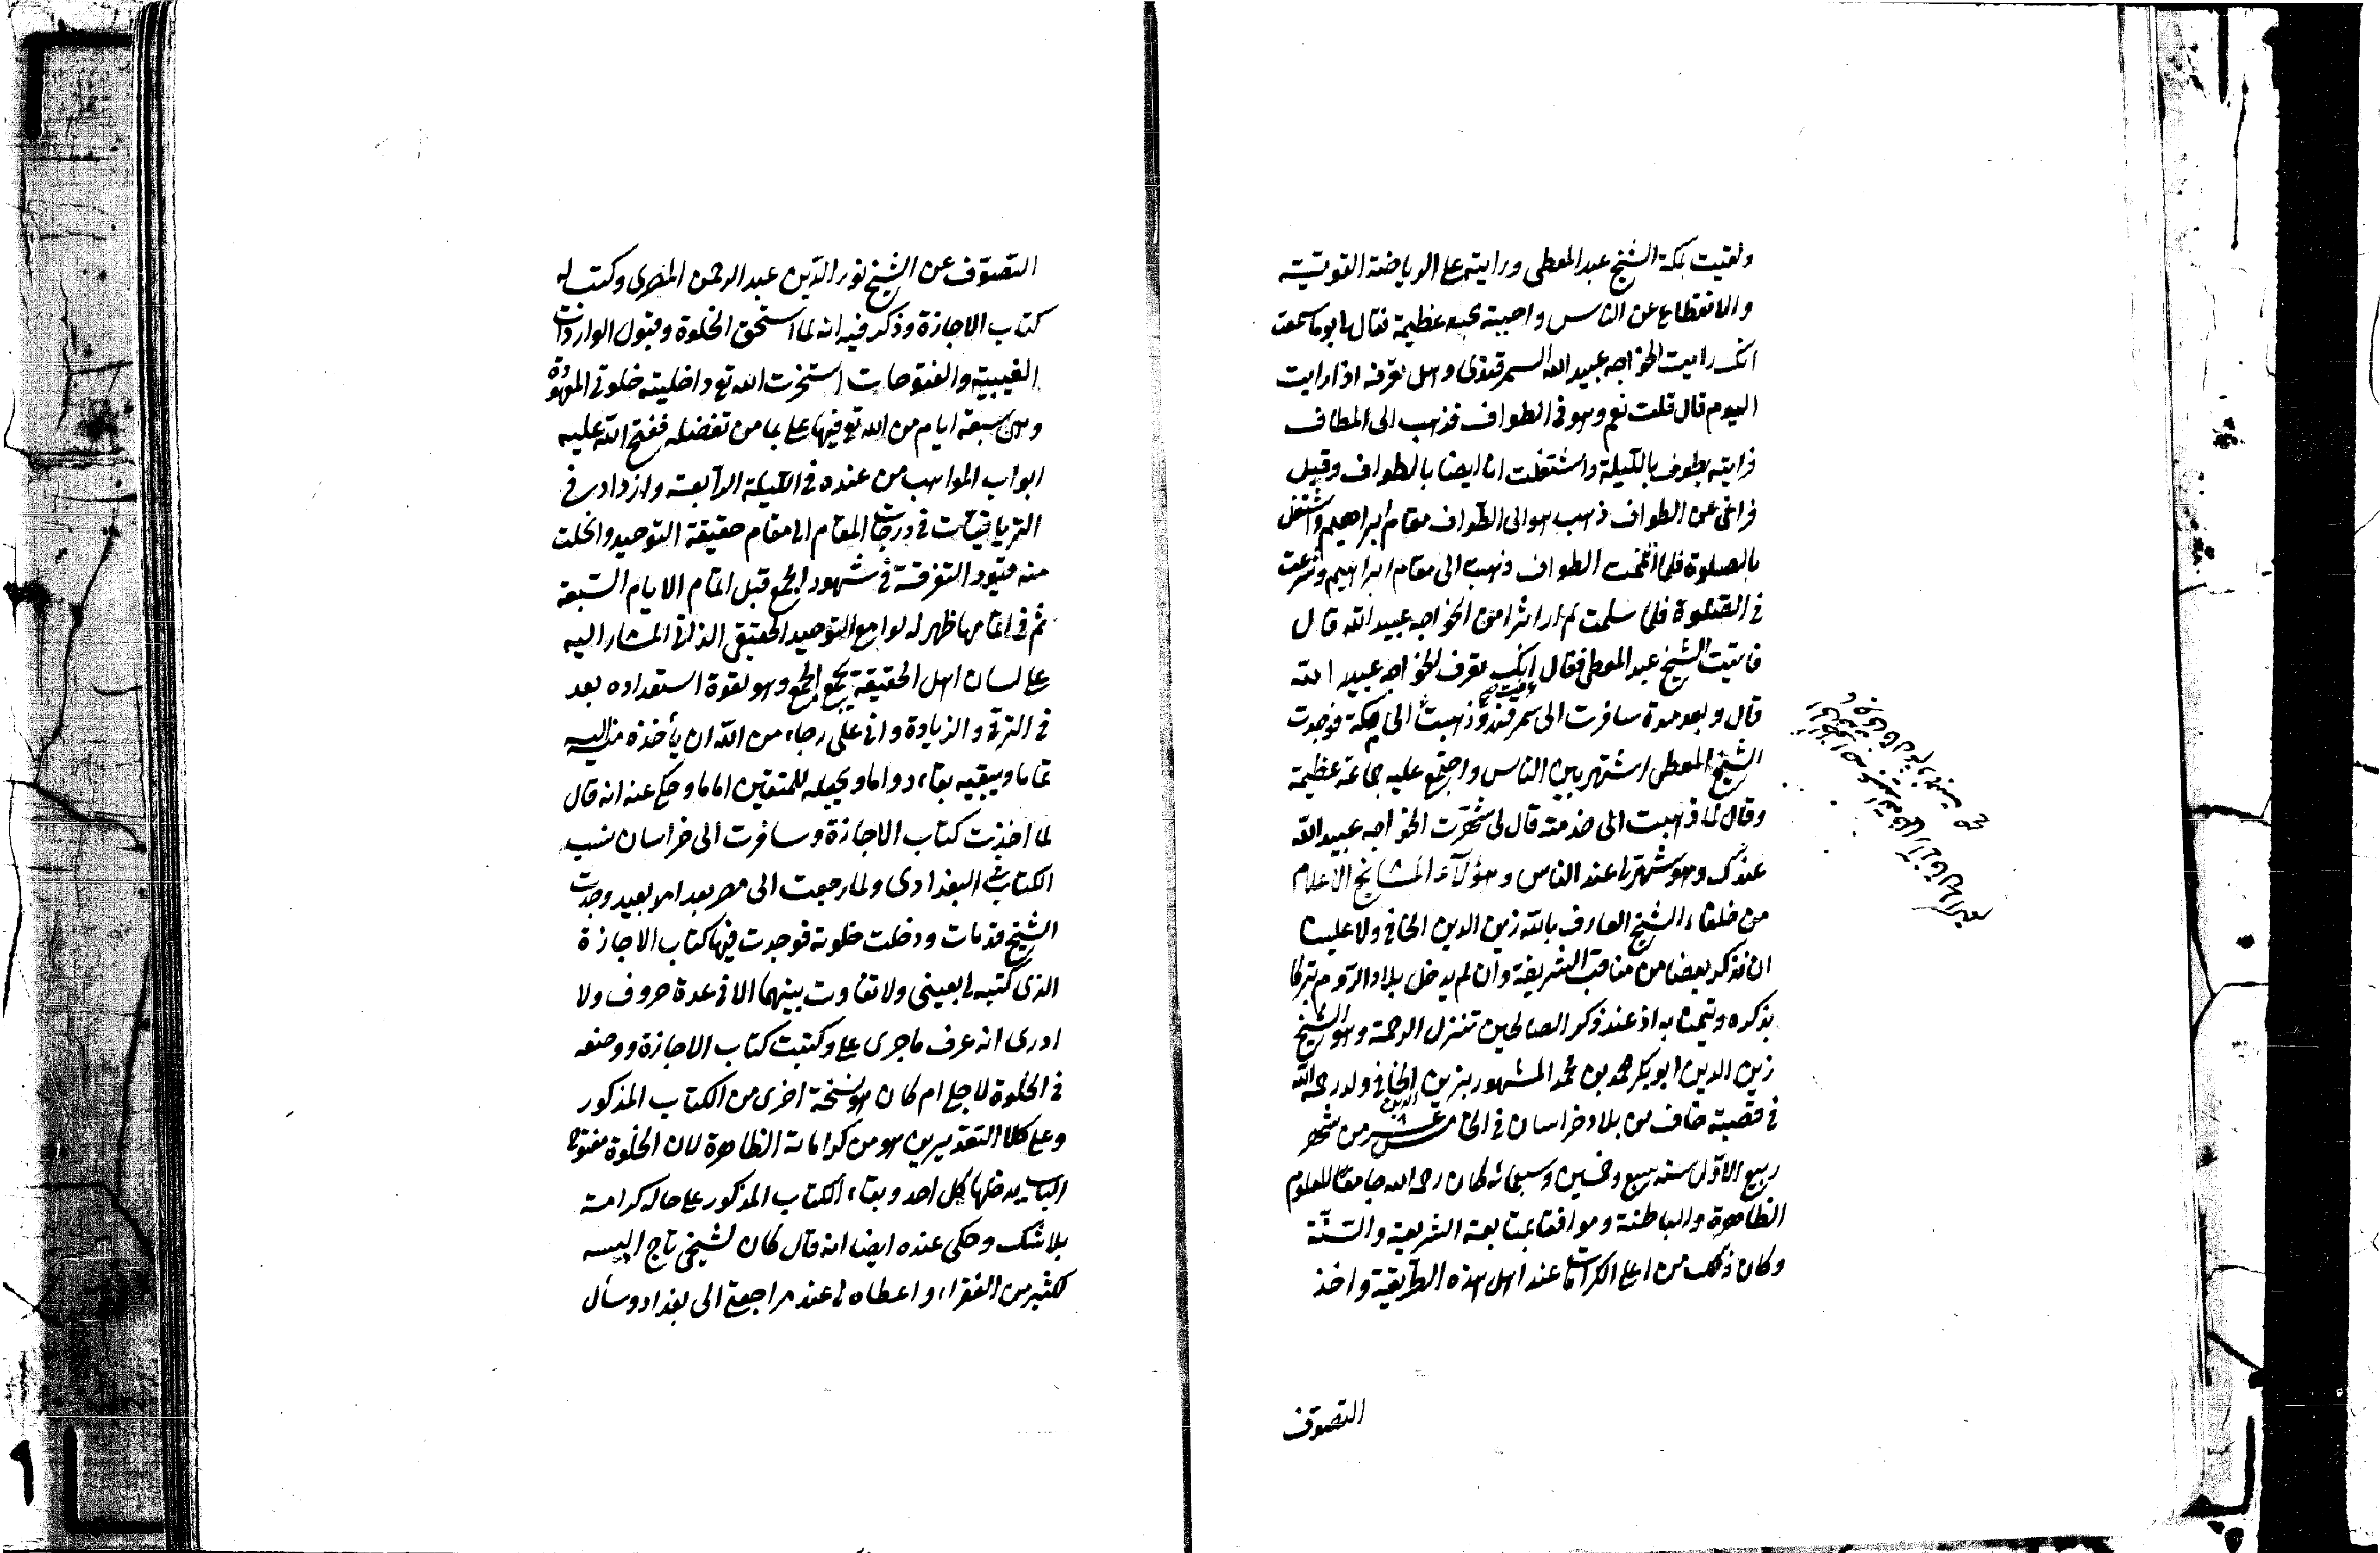 ولقيت بمكة الشيخ عبد المعطى ورايته على الرياضة القوية
والانقطاع عن الناس واحببته محبة عظيمة فقال يوما سمعت
انك رايت الخواجه عبيد الله السمرقندى وهل تعرفه اذا رايت
اليوم قال قلت نعم وهو فى الطواف فذهب الى المطاف
فرايته يطوف بالليلة واشتغلت انا ايضا بالطواف وقبل
فراغى عن الطواف ذهب هو الى الطواف مقام ابراهيم واشتغل
بالصلوة فلما اتممت الطواف ذهبت الى مقام ابراهيم وشرعت
فى الصلوة فلما سلمت لم ار اثرا من الخواجه عبيد الله قال
فاتيت الشيخ عبد المعطى فقال انك تعرف الخواجه عبيد الله
قال وبعد مدة سافرت الى سمرقند وذهبت الى مكة فوجدت
الشيخ المعطى اشتهر بين الناس واجتمع عليه جماعة عظيمة
وقال لما ذهبت الى خدمته قال لى شهرت الخواجه عبيد الله
عندك وهو شهرنى عند الناس وهؤلآء المشايخ الاعلام
من خلفاء الشيخ العارف بالله زين الدين الخافى ولا علينا
ان نذكر بعضا من مناقبه الشريفة وان لم يدخل بلاد الروم تبركا
بذكره وتيمنا به اذ عند ذكر الصالحين تنزل الرحمة وهو الشيخ
زين الدين ابو بكر محمد بن محمد المشهور بزين الدين الخافى ولد رحمه الله
فى قصبة خاف من بلاد خراسان فى الخامس عشر من شهر
ربيع الاول سنة سبع وخمسين وسبعمائة كان رحمه الله جامعا للعلوم
الظاهرة والباطنة وموافقا بمتابعة الشريعة والسنة
وكان ذلك من اعلى الكرامات عند اهل هذه الطريقة واخذ
التصوف
التصوف عن الشيخ نور الدين عبد الرحمن المصرى وكتب له
كتاب الاجازة وذكر فيه انه لما استحق الخلوة وقبول الواردات
الغيبية والفتوحات استخرت الله تع واخليته خلوتى المعهودة
وهى سبعة ايام من الله تع فيها على بما من تفضله ففتح الله عليه
ابواب المواهب من عنده فى الليلة الرابعة وازداد فى
الترقيات فى درجات المقام الى مقام حقيقة التوحيد وانحلت
منه قيود التفرقة فى شهود الجمع قبل اتمام الايام السبعة
ثم فى اتمامها ظهر له لوامع التوحيد الحقيقى الذاتى المشار اليه
على لسان اهل الحقيقة بجمع الجمع وهو لقوة استعداده بعد
فى الترقى والزيادة وانى على رجاء من الله ان يأخذه منه اليه
تماما ويبقيه بقاء دواما ويجعله للمتقين اماما وحكى عنه انه قال
لما اخذت كتاب الاجازة وسافرت الى خراسان نسيت
الكتاب فى البغدادى ولما رجعت الى مصر بعد امد بعيد وجدت
الشيخ قد مات ودخلت خلوته فوجدت فيها كتاب الاجازة
الذى كتبه لى بعينى ولا تفاوت بينهما الا فى عدة حروف ولا
ادرى انه عرف ما جرى على وكتبت كتاب الاجازة ووضعه
فى الخلوة لاجلى ام كان هو نسخة اخرى من الكتاب المذكور
وعلى كلا التقديرين هو من كراماته الظاهرة لان الخلوة مفتوحة
الباب يدخلها كل احد وبقاء الكتاب المذكور على حاله كرامة
بلا شك وحكى عنده ايضا انه قال كان لشيخى تاج البسه
كثير من الفقراء واعطاه لى عند مراجعتى الى بغداد وسأل